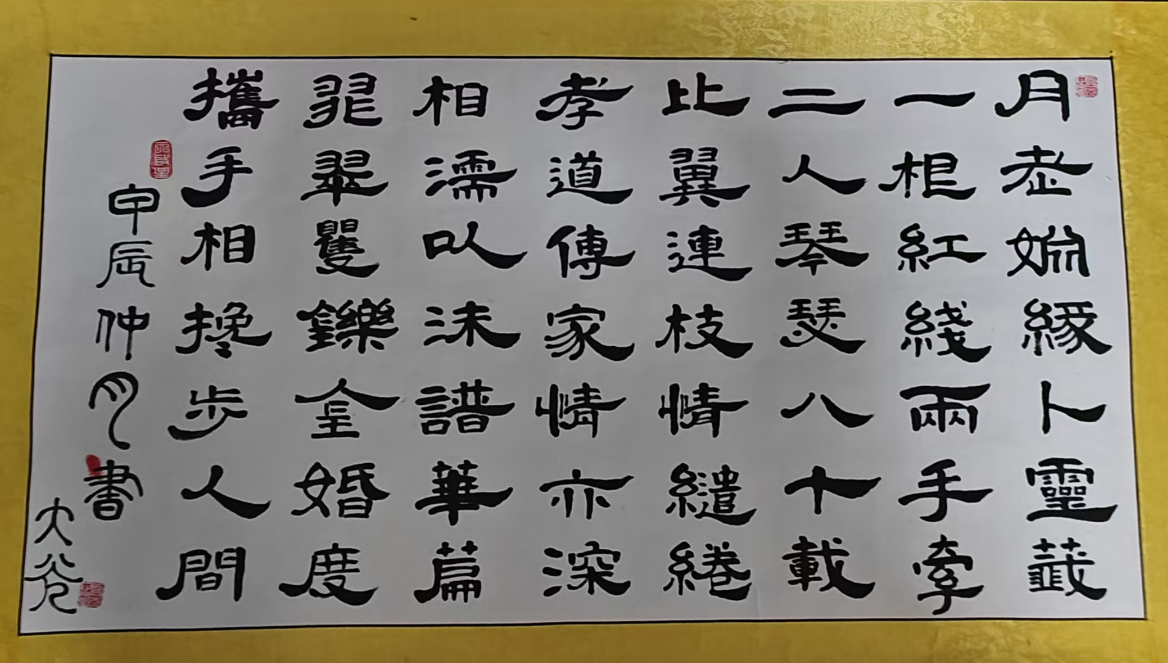 月老姻緣卜靈籤
一根紅綫兩手牽
二人琴瑟八十載
比翼連枝情繾綣
孝道傳家情亦深
相濡以沫譜華篇
翡翠矍鑠金婚度
攜手相搀步人間
甲辰仲月書